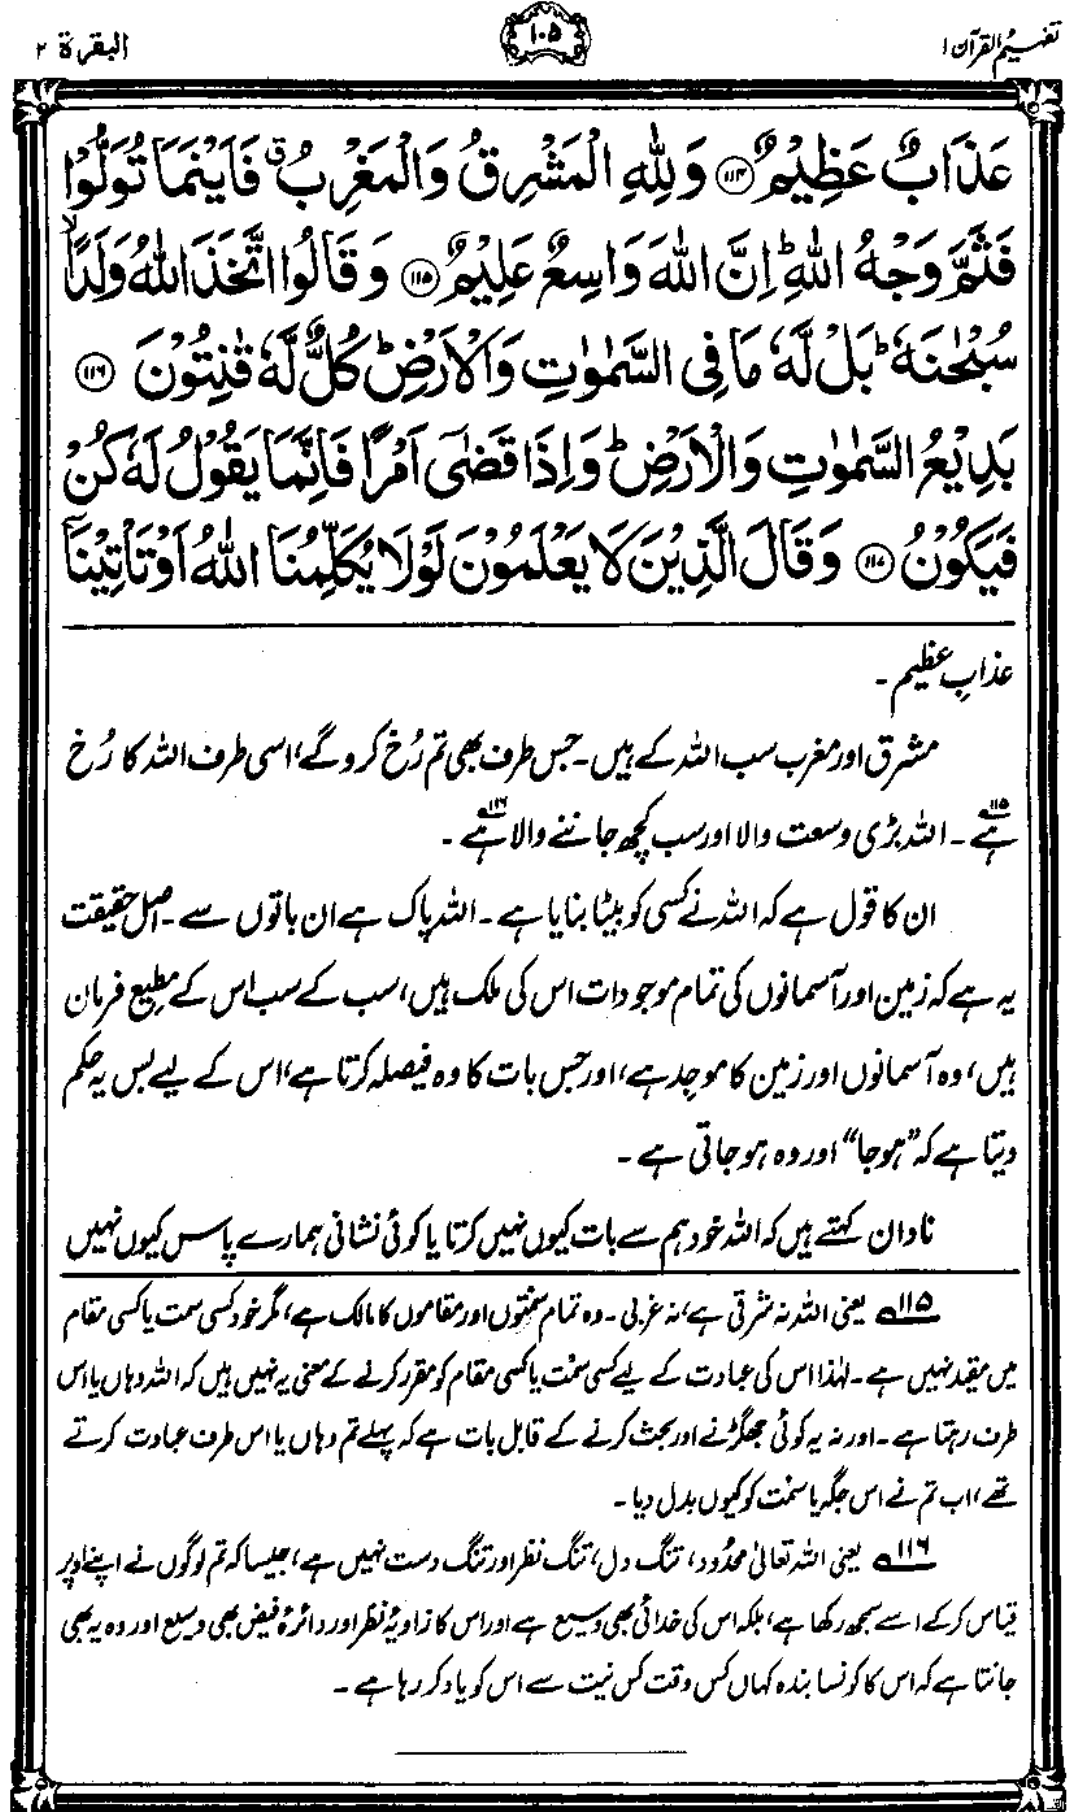 تفہیم القرآن ۱
۱۰۵
البقرة ۲
عَذَابٌ عَظِيْمٌ ﴿۱۱۴﴾ وَلِلّٰهِ الْمَشْرِقُ وَالْمَغْرِبُ ۗ فَاَيْنَمَا تُوَلُّوْا
فَثَمَّ وَجْهُ اللّٰهِ ؕ اِنَّ اللّٰهَ وَاسِعٌ عَلِيْمٌ ﴿۱۱۵﴾ وَقَالُوا اتَّخَذَ اللّٰهُ وَلَدًا ۙ
سُبْحٰنَهٗ ؕ بَلْ لَّهٗ مَا فِى السَّمٰوٰتِ وَالْاَرْضِ ؕ كُلٌّ لَّهٗ قٰنِتُوْنَ ﴿۱۱۶﴾
بَدِيْعُ السَّمٰوٰتِ وَالْاَرْضِ ؕ وَاِذَا قَضٰٓى اَمْرًا فَاِنَّمَا يَقُوْلُ لَهٗ كُنْ
فَيَكُوْنُ ﴿۱۱۷﴾ وَقَالَ الَّذِيْنَ لَا يَعْلَمُوْنَ لَوْلَا يُكَلِّمُنَا اللّٰهُ اَوْ تَاْتِيْنَآ
عذابِ عظیم۔
مشرق اور مغرب سب اللہ کے ہیں۔ جس طرف بھی تم رُخ کرو گے، اسی طرف اللہ کا رُخ
ہے۱۱۵۔ اللہ بڑی وسعت والا اور سب کچھ جاننے والا ہے۱۱۶۔
ان کا قول ہے کہ اللہ نے کسی کو بیٹا بنایا ہے۔ اللہ پاک ہے ان باتوں سے۔ اصل حقیقت
یہ ہے کہ زمین اور آسمانوں کی تمام موجودات اس کی ملک ہیں، سب کے سب اس کے مطیع فرمان
ہیں، وہ آسمانوں اور زمین کا موجِد ہے، اور جس بات کا وہ فیصلہ کرتا ہے، اس کے لیے بس یہ حکم
دیتا ہے کہ ”ہو جا“ اور وہ ہو جاتی ہے۔
نادان کہتے ہیں کہ اللہ خود ہم سے بات کیوں نہیں کرتا یا کوئی نشانی ہمارے پاس کیوں نہیں
۱۱۵ یعنی اللہ نہ شرقی ہے، نہ غربی۔ وہ تمام سمتوں اور مقاموں کا مالک ہے، مگر خود کسی سمت یا کسی مقام
میں مقید نہیں ہے۔ لہٰذا اس کی عبادت کے لیے کسی سمْت یا کسی مقام کو مقرر کرنے کے معنی یہ نہیں ہیں کہ اللہ وہاں یا اس
طرف رہتا ہے۔ اور نہ یہ کوئی جھگڑنے اور بحث کرنے کے قابل بات ہے کہ پہلے تم وہاں یا اس طرف عبادت کرتے
تھے، اب تم نے اس جگہ یا سمْت کو کیوں بدل دیا۔
۱۱۶ یعنی اللہ تعالیٰ محدُود، تنگ دل، تنگ نظر اور تنگ دست نہیں ہے، جیسا کہ تم لوگوں نے اپنے اوپر
قیاس کر کے اسے سمجھ رکھا ہے، بلکہ اس کی خدائی بھی وسیع ہے اور اس کا زاویۂ نظر اور دائرۂ فیض بھی وسیع اور وہ یہ بھی
جانتا ہے کہ اس کا کونسا بندہ کہاں کس وقت کس نیت سے اس کو یاد کر رہا ہے۔